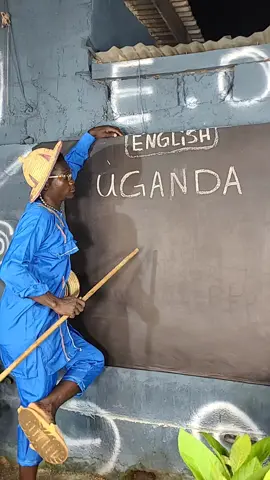 ENGLISH
UGANDA